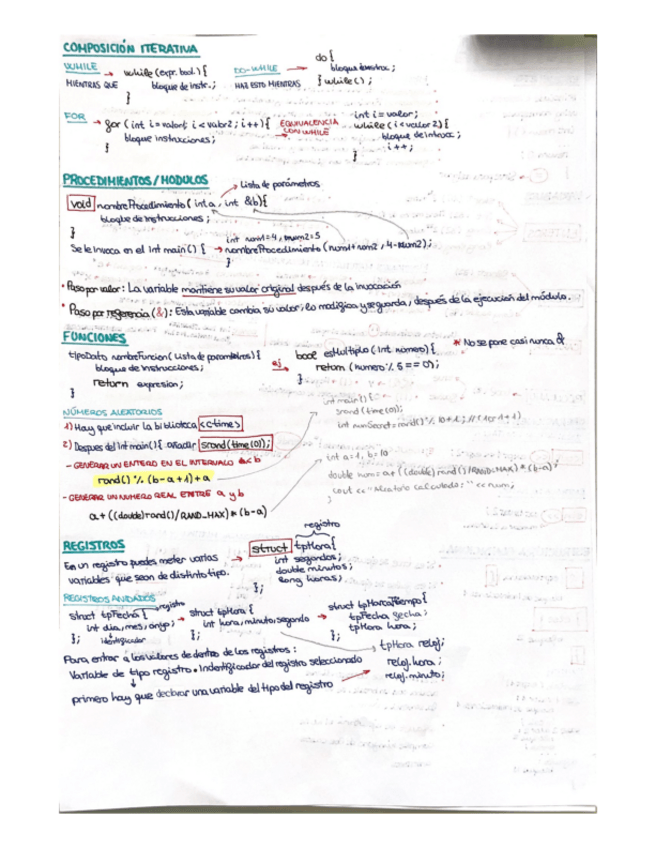 COMPOSICIÓN ITERATIVA
WHILE → while (expr. bool.) {
MIENTRAS QUE bloque de instr.;
}
DO-WHILE →
HAZ ESTO MIENTRAS
do {
bloque de instruc.;
} while ();
FOR → for (int i = valor1; i < valor2; i++) {
bloque instrucciones;
}
EQUIVALENCIA
CON WHILE
int i = valor;
while (i < valor2) {
bloque de instrucc.;
i++;
}
PROCEDIMIENTOS/MODULOS
→ Lista de parámetros
void nombreProcedimiento (int a, int &b) {
bloque de instrucciones;
}
int num1=4, num2=5
Se le invoca en el int main() { → nombreProcedimiento (num1+num2, 4-num2);
}
• Paso por valor: La variable mantiene su valor original después de la invocación
• Paso por referencia (&): Esta variable cambia su valor, lo modifica y se guarda, después de la ejecución del módulo.
FUNCIONES
tipoDato nombreFuncion (Lista de parametros) {
bloque de instrucciones;
return expresion;
}
ej →
bool esMultiplo (int numero) {
return (numero % 5 == 0);
}
* No se pone casi nunca &
NÚMEROS ALEATORIOS
1) Hay que incluir la biblioteca <ctime>
2) Despues del int main() { añadir srand(time(0));
- GENERAR UN ENTERO EN EL INTERVALO a<b
rand() % (b-a+1)+a
- GENERAR UN NUMERO REAL ENTRE a y b
a + ((double)rand()/RAND_MAX) * (b-a)
int main() {
srand(time(0));
int numSecret = rand() % 10+1;
int a=1, b=10
double num = a + ((double) rand()/RAND_MAX) * (b-a);
cout << "Aleatorio calculado: " << num;
}
REGISTROS
En un registro puedes meter varias
variables que sean de distinto tipo.
registro
→ struct tpHora {
int segundos;
double minutos;
long horas;
};
REGISTROS ANIDADOS
struct tpFecha { registro
int dia, mes, anyo;
}; identificador
→ struct tpHora {
int hora, minuto, segundo
};
→ struct tpHoraTiempo {
tpFecha fecha;
tpHora hora;
};
Para entrar a los valores de dentro de los registros:
Variable de tipo registro . Indentificador del registro seleccionado
primero hay que declarar una variable del tipo del registro
tpHora reloj;
reloj.hora;
reloj.minuto;